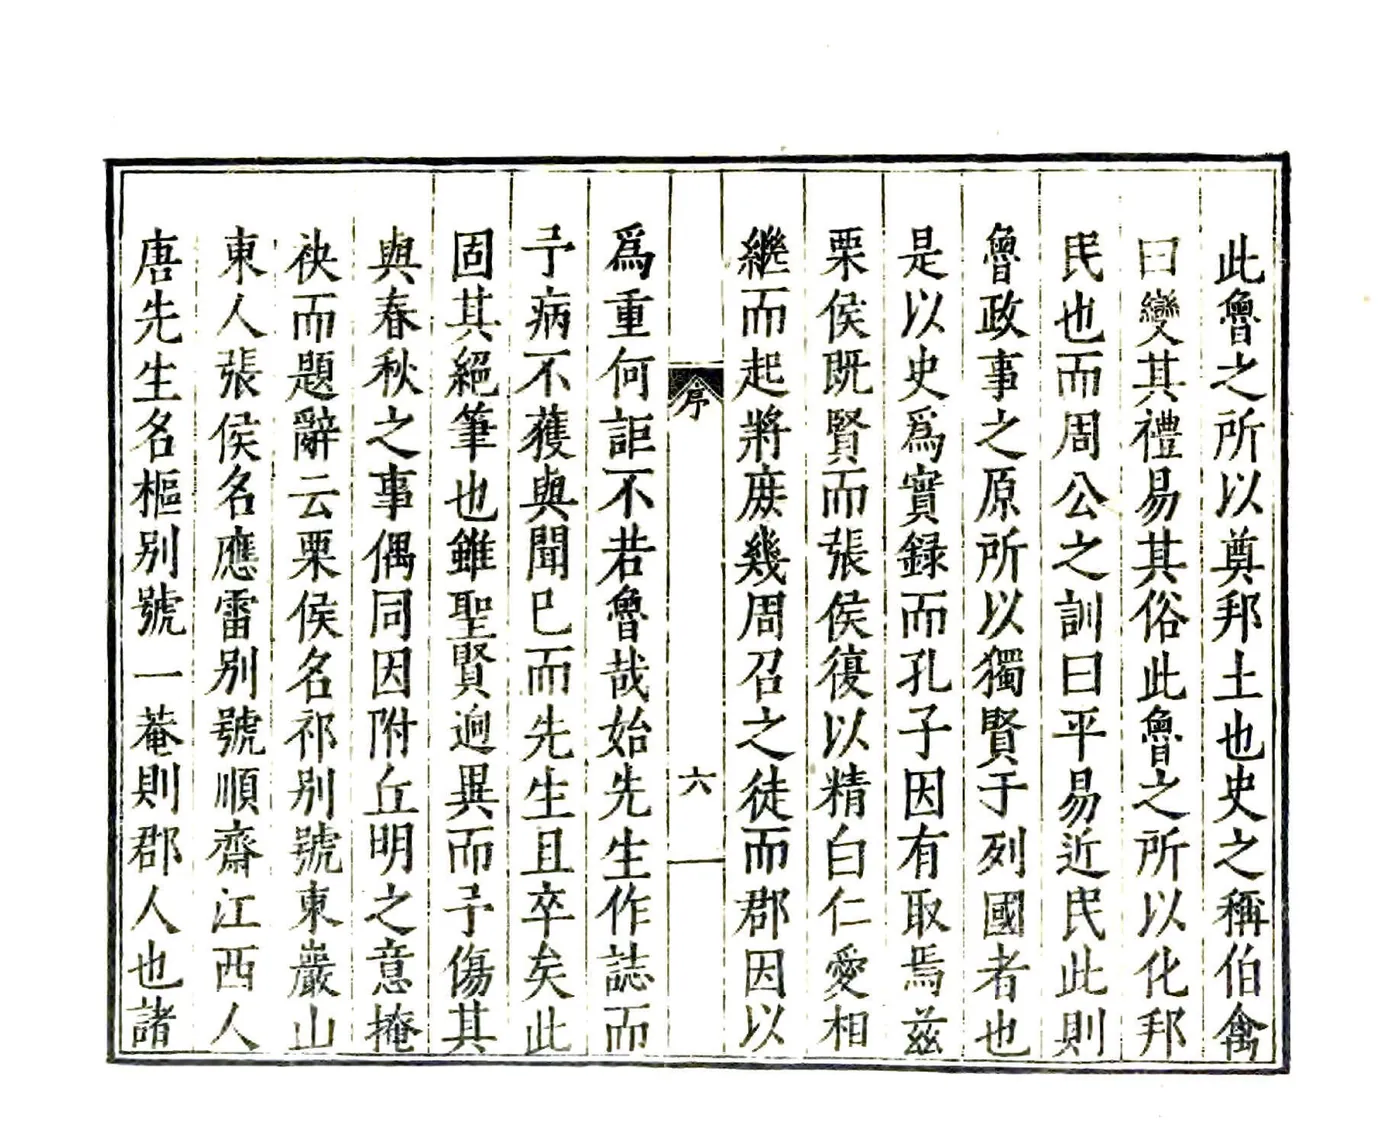 此魯之所以奠邦土也史之稱伯禽
曰變其禮易其俗此魯之所以化邦
民也而周公之訓曰平易近民此則
魯政事之原所以獨賢于列國者也
是以史爲實録而孔子因有取焉兹
栗侯既賢而張侯復以精白仁愛相
繼而起將庻幾周召之徒而郡因以
序
六
爲重何詎不若魯哉始先生作誌而
予病不獲與聞已而先生且卒矣此
固其絕筆也雖聖賢迥異而予傷其
與春秋之事偶同因附丘明之意掩
袂而題辭云栗侯名祁别號東巖山
東人張侯名應雷别號順齋江西人
唐先生名樞别號一菴則郡人也諸